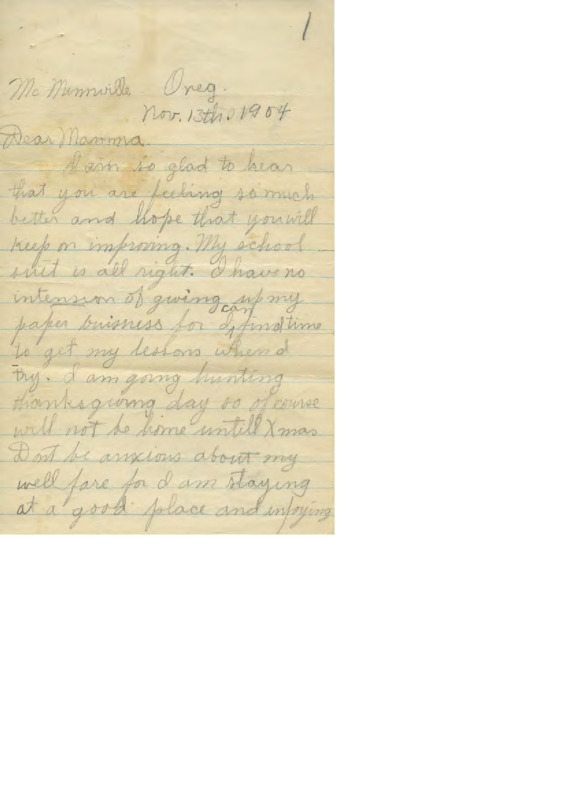 1
Mc Minnville Oreg.
Nov. 13th. 1904
Dear Mamma.
I am so glad to hear
that you are feeling so much
better and hope that you will
keep on improving. My school
suit is all right. I have no
intension of giving up my
paper buisness for I can find time
to get my lessons when I
try. I am going hunting
thanksgiving day so of course
will not be home untill Xmas
Dont be anxious about my
well fare for I am staying
at a good place and injoying